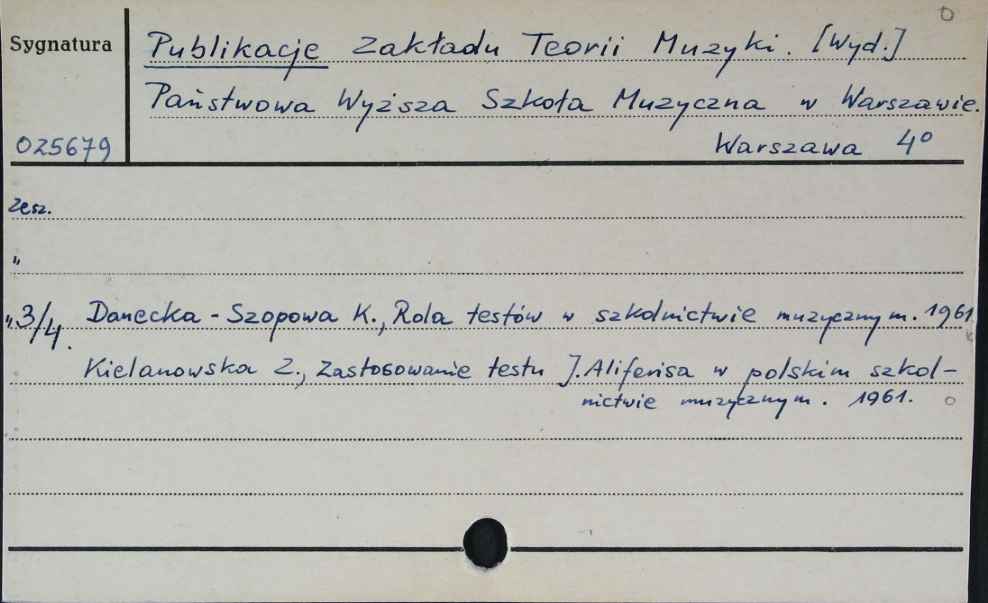 Sygnatura
Publikacje Zakładu Teorii Muzyki. [Wyd.]
Państwowa Wyższa Szkoła Muzyczna w Warszawie.
025679
Warszawa 4º
Zesz.
"
" 3/4. Danecka-Szopowa K., Rola testów w szkolnictwie muzycznym. 1961
Kielanowska Z., Zastosowanie testu J. Aliferisa w polskim szkol-
nictwie muzycznym. 1961.